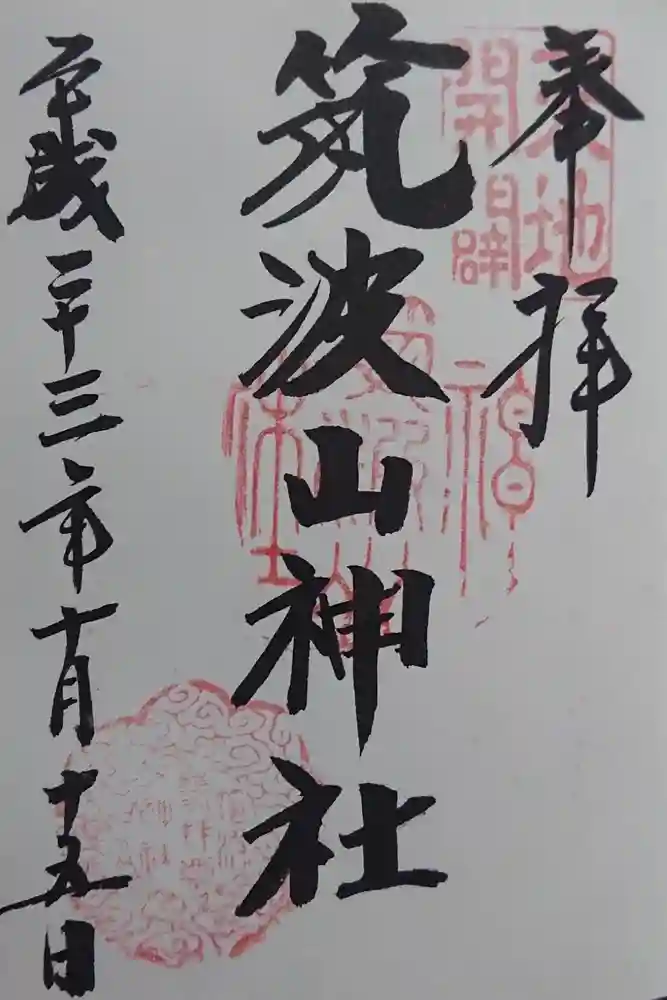 奉拝
天地
開闢
筑波山神社
平成二十三年十月十五日